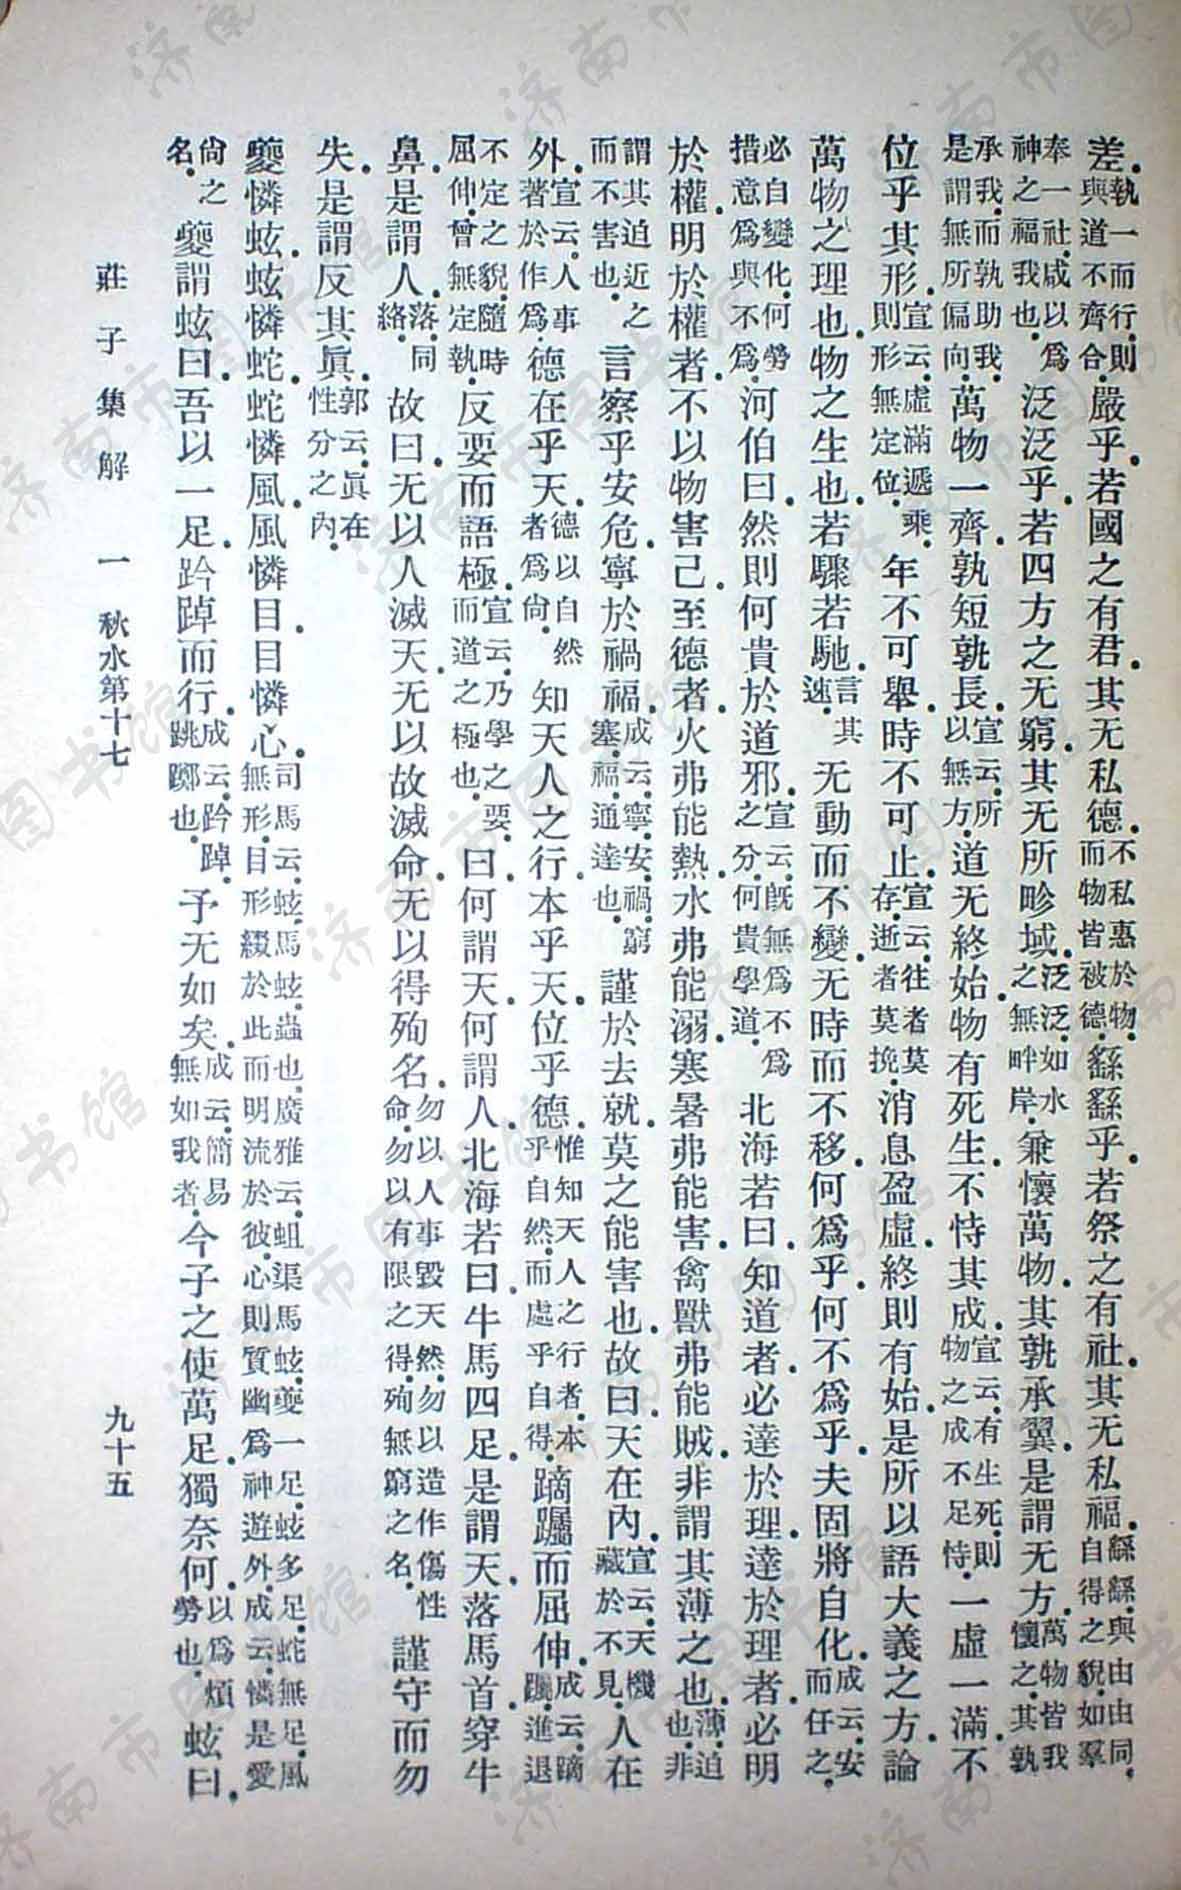 差。執一而行。則與道不齊合。嚴乎。若國之有君。其无私德。不私惠於物。而物皆被德。繇繇乎。若祭之有社。其无私福。繇繇。與由由同。自得之貌。如羣
奉一社。咸以爲神之福我也。泛泛乎。若四方之无窮。其无所畛域。泛泛。如水之無畔岸。兼懷萬物。其孰承翼。是謂无方。萬物皆我懷之。其孰
承我。而孰助我。是謂無所偏向。萬物一齊。孰短孰長。宣云。所以無方。道无終始。物有死生。不恃其成。宣云。有生死。則物之成不足恃。一虛一滿。不
位乎其形。宣云。虛滿遞乘。則形無定位。年不可舉。時不可止。宣云。往者莫存。逝者莫挽。消息盈虛。終則有始。是所以語大義之方。論
萬物之理也。物之生也。若驟若馳。言其速。无動而不變。无時而不移。何爲乎。何不爲乎。夫固將自化。成云。安而任之。
必自變化。何勞措意爲與不爲。河伯曰。然則何貴於道邪。宣云。既無爲不爲之分。何貴學道。北海若曰。知道者。必達於理。達於理者。必明
於權。明於權者。不以物害己。至德者。火弗能熱。水弗能溺。寒暑弗能害。禽獸弗能賊。非謂其薄之也。薄。迫也。非
謂其迫近之而不害也。言察乎安危。寧於禍福。成云。寧。安。禍。窮塞。福。通達也。謹於去就。莫之能害也。故曰。天在內。宣云。天機藏於不見。人在
外。宣云。人事著於作爲。德在乎天。德以自然者爲尙。知天人之行。本乎天。位乎德。惟知天人之行者。本乎自然。而處乎自得。蹢䠱而屈伸。成云。蹢䠱。進退
不定之貌。隨時屈伸。曾無定執。反要而語極。宣云。乃學之要。而道之極也。曰。何謂天。何謂人。北海若曰。牛馬四足。是謂天。落馬首。穿牛
鼻。是謂人。落同絡。故曰。无以人滅天。无以故滅命。无以得殉名。勿以人事毀天然。勿以造作傷性命。勿以有限之得。殉無窮之名。謹守而勿
失。是謂反其眞。郭云。眞在性分之內。
夔憐蚿。蚿憐蛇。蛇憐風。風憐目。目憐心。司馬云。蚿。馬蚿。蟲也。廣雅云。蛆渠馬蚿。夔一足。蚿多足。蛇無足。風無形。目形綴於此而明流於彼。心則質幽爲神遊外。成云。憐是愛
尙之名。夔謂蚿曰。吾以一足。趻踔而行。成云。趻踔。跳躑也。予无如矣。成云。簡易無如我者。今子之使萬足。獨奈何。以爲煩勞也。蚿曰。
莊子集解 一 秋水第十七 九十五